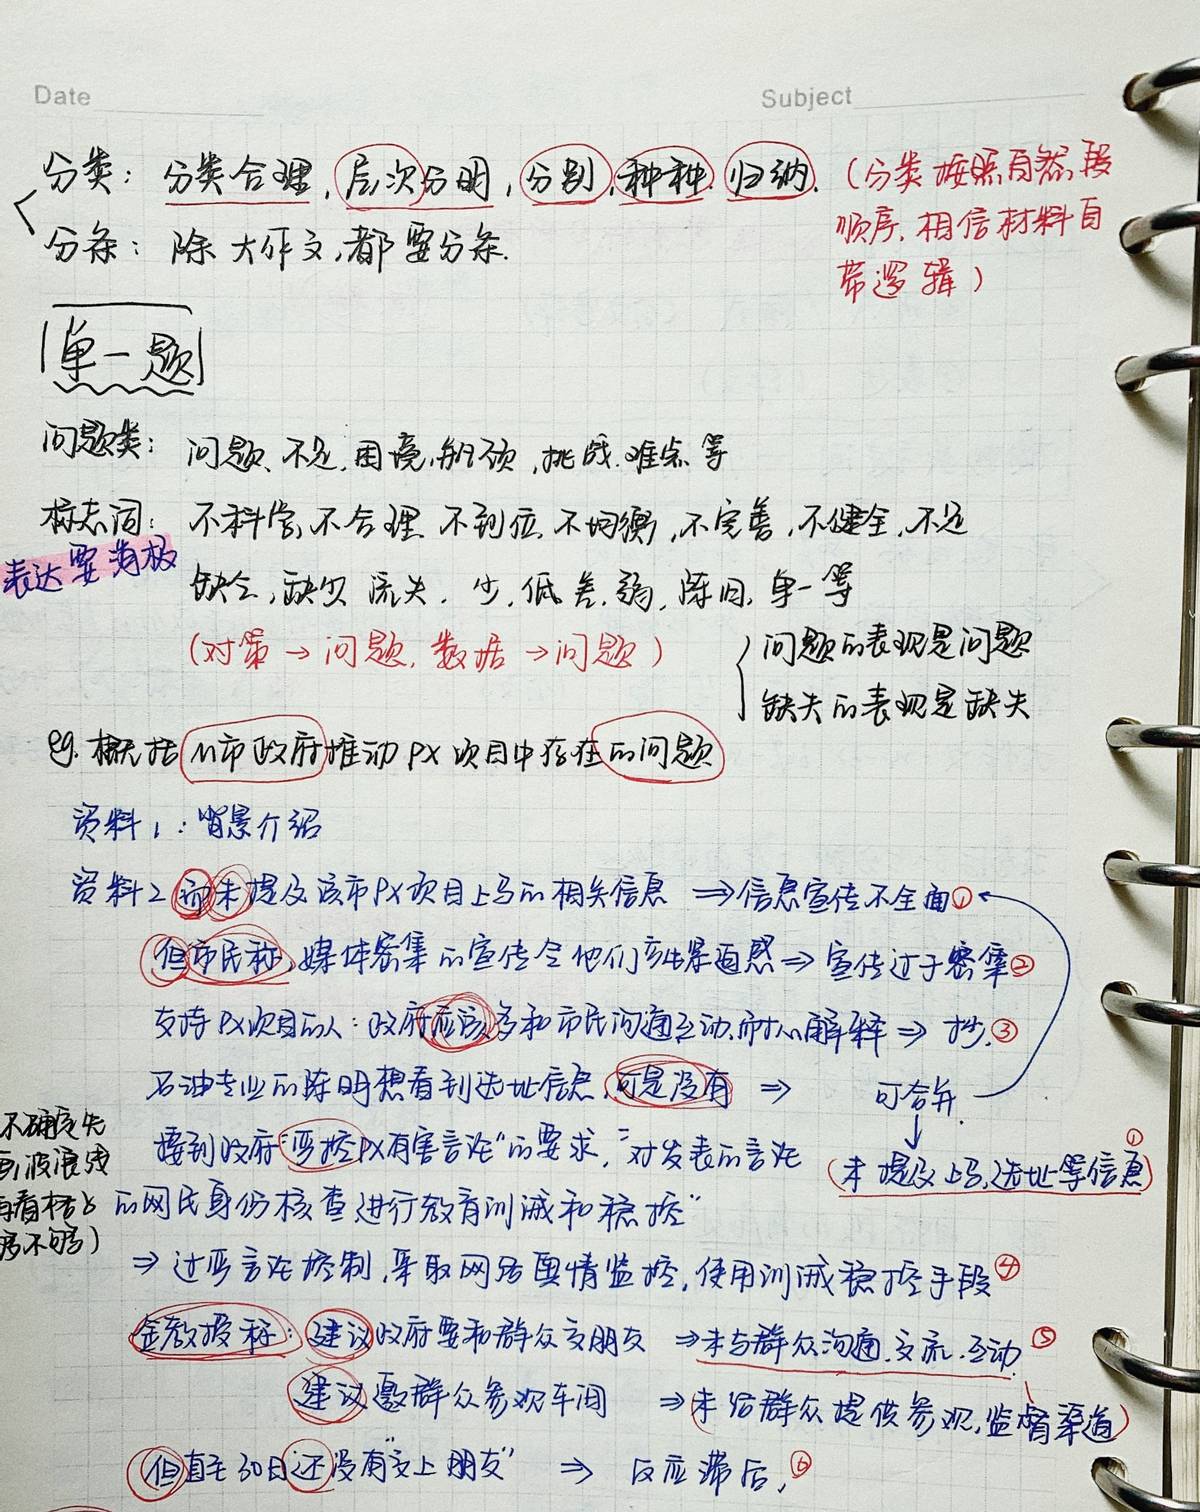 Date Subject
分类：分类合理，层次分明，分别，种种，归纳.（分类按照自然段
顺序，相信材料自
带逻辑）
分条：除大作文，都要分条.
单一题
问题类：问题、不足，困境，瓶颈，挑战，难点等
标志词：不科学，不合理，不到位，不均衡，不完善，不健全，不足
表达要消极
缺乏，缺少，流失，少，低，差，弱，陈旧，单一等
（对策→问题，数据→问题）
问题的表现是问题
缺失的表现是缺失
eg. 概括N市政府推动PX项目中存在的问题
资料1：背景介绍
资料2 而未提及该市PX项目上马的相关信息 ⇒信息宣传不全面①
但市民称，媒体密集的宣传令他们产生疑惑⇒宣传过于密集②
支持PX项目的人：政府应该多和市民沟通互动，耐心解释⇒抄.③
石油专业的陈明想看到选址信息，可是没有 ⇒ 可合并
接到政府"严控PX有害言论"的要求，"对发表的言论
（未提及上马、选址等信息）①
不确定先
画波浪线
再看材料
够不够）
的网民身份核查进行教育训诫和稳控"
⇒过严言论控制，采取网络舆情监控，使用训诫稳控手段④
金教授称：建议政府要和群众交朋友 ⇒未与群众沟通、交流、互动.⑤
建议邀群众参观车间 ⇒未给群众提供参观，监督渠道）
但直至30日还没有"交上朋友" ⇒ 反应滞后，⑥